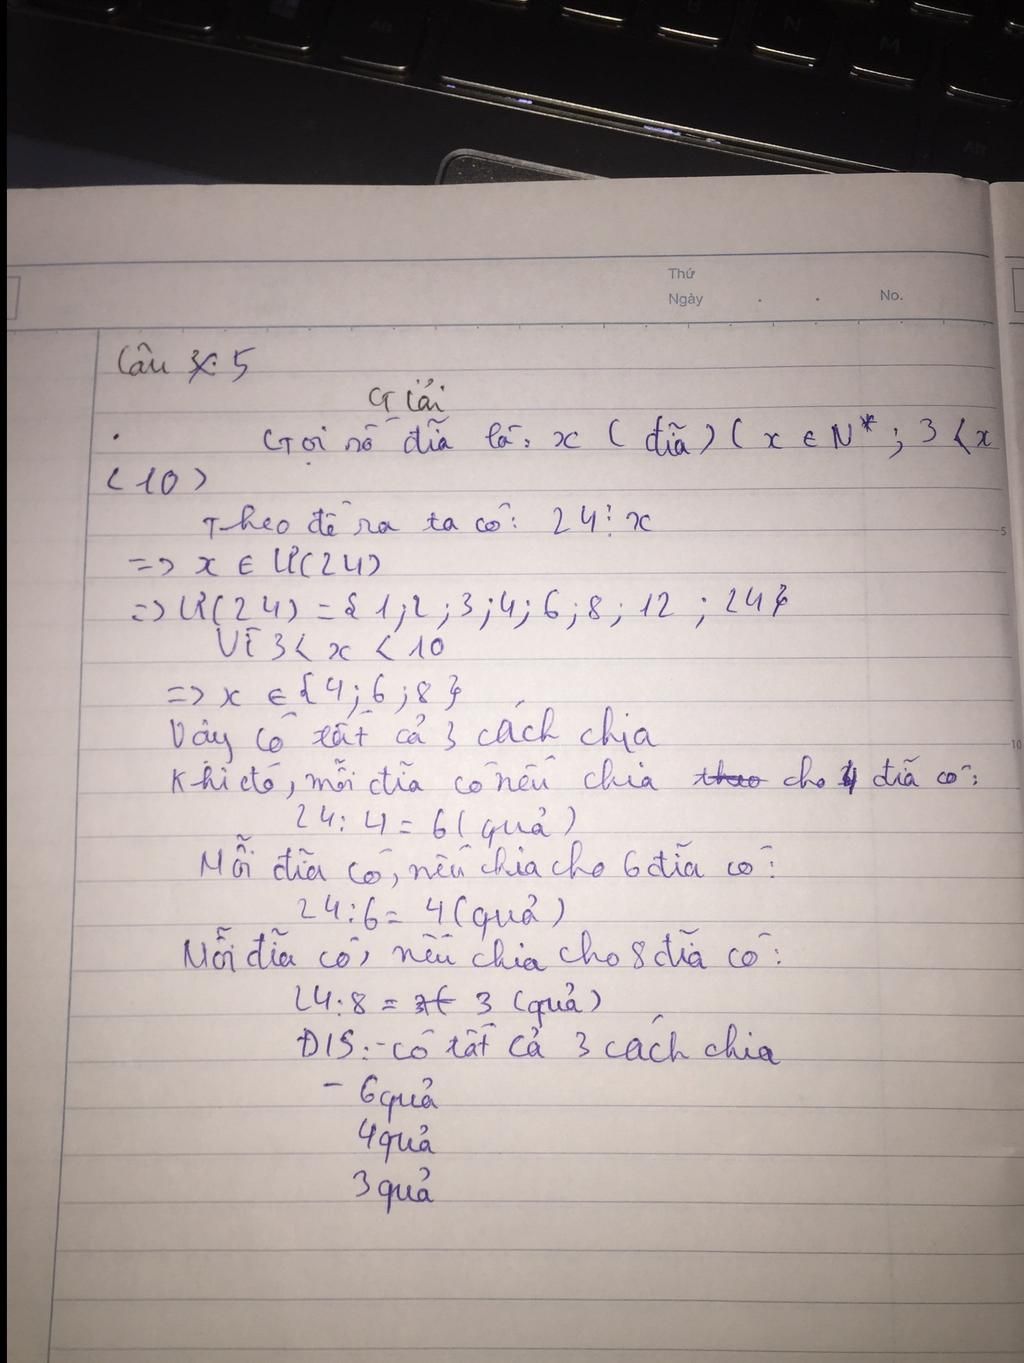 Thứ
Ngày . . No.
Câu 5
Giải
Gọi số đĩa là: x (đĩa) (x ∈ N*; 3 < x
< 10)
Theo đề ra ta có: 24 ⋮ x
=> x ∈ Ư(24)
=> Ư(24) = { 1; 2; 3; 4; 6; 8; 12; 24}
Vì 3 < x < 10
=> x ∈ {4; 6; 8}
Vậy có tất cả 3 cách chia
Khi đó, mỗi đĩa có nếu chia theo cho 4 đĩa có:
24 : 4 = 6 (quả)
Mỗi đĩa có, nếu chia cho 6 đĩa có:
24 : 6 = 4 (quả)
Mỗi đĩa có, nếu chia cho 8 đĩa có:
24 : 8 = 3 (quả)
Đ/S: - có tất cả 3 cách chia
- 6 quả
4 quả
3 quả
5
10